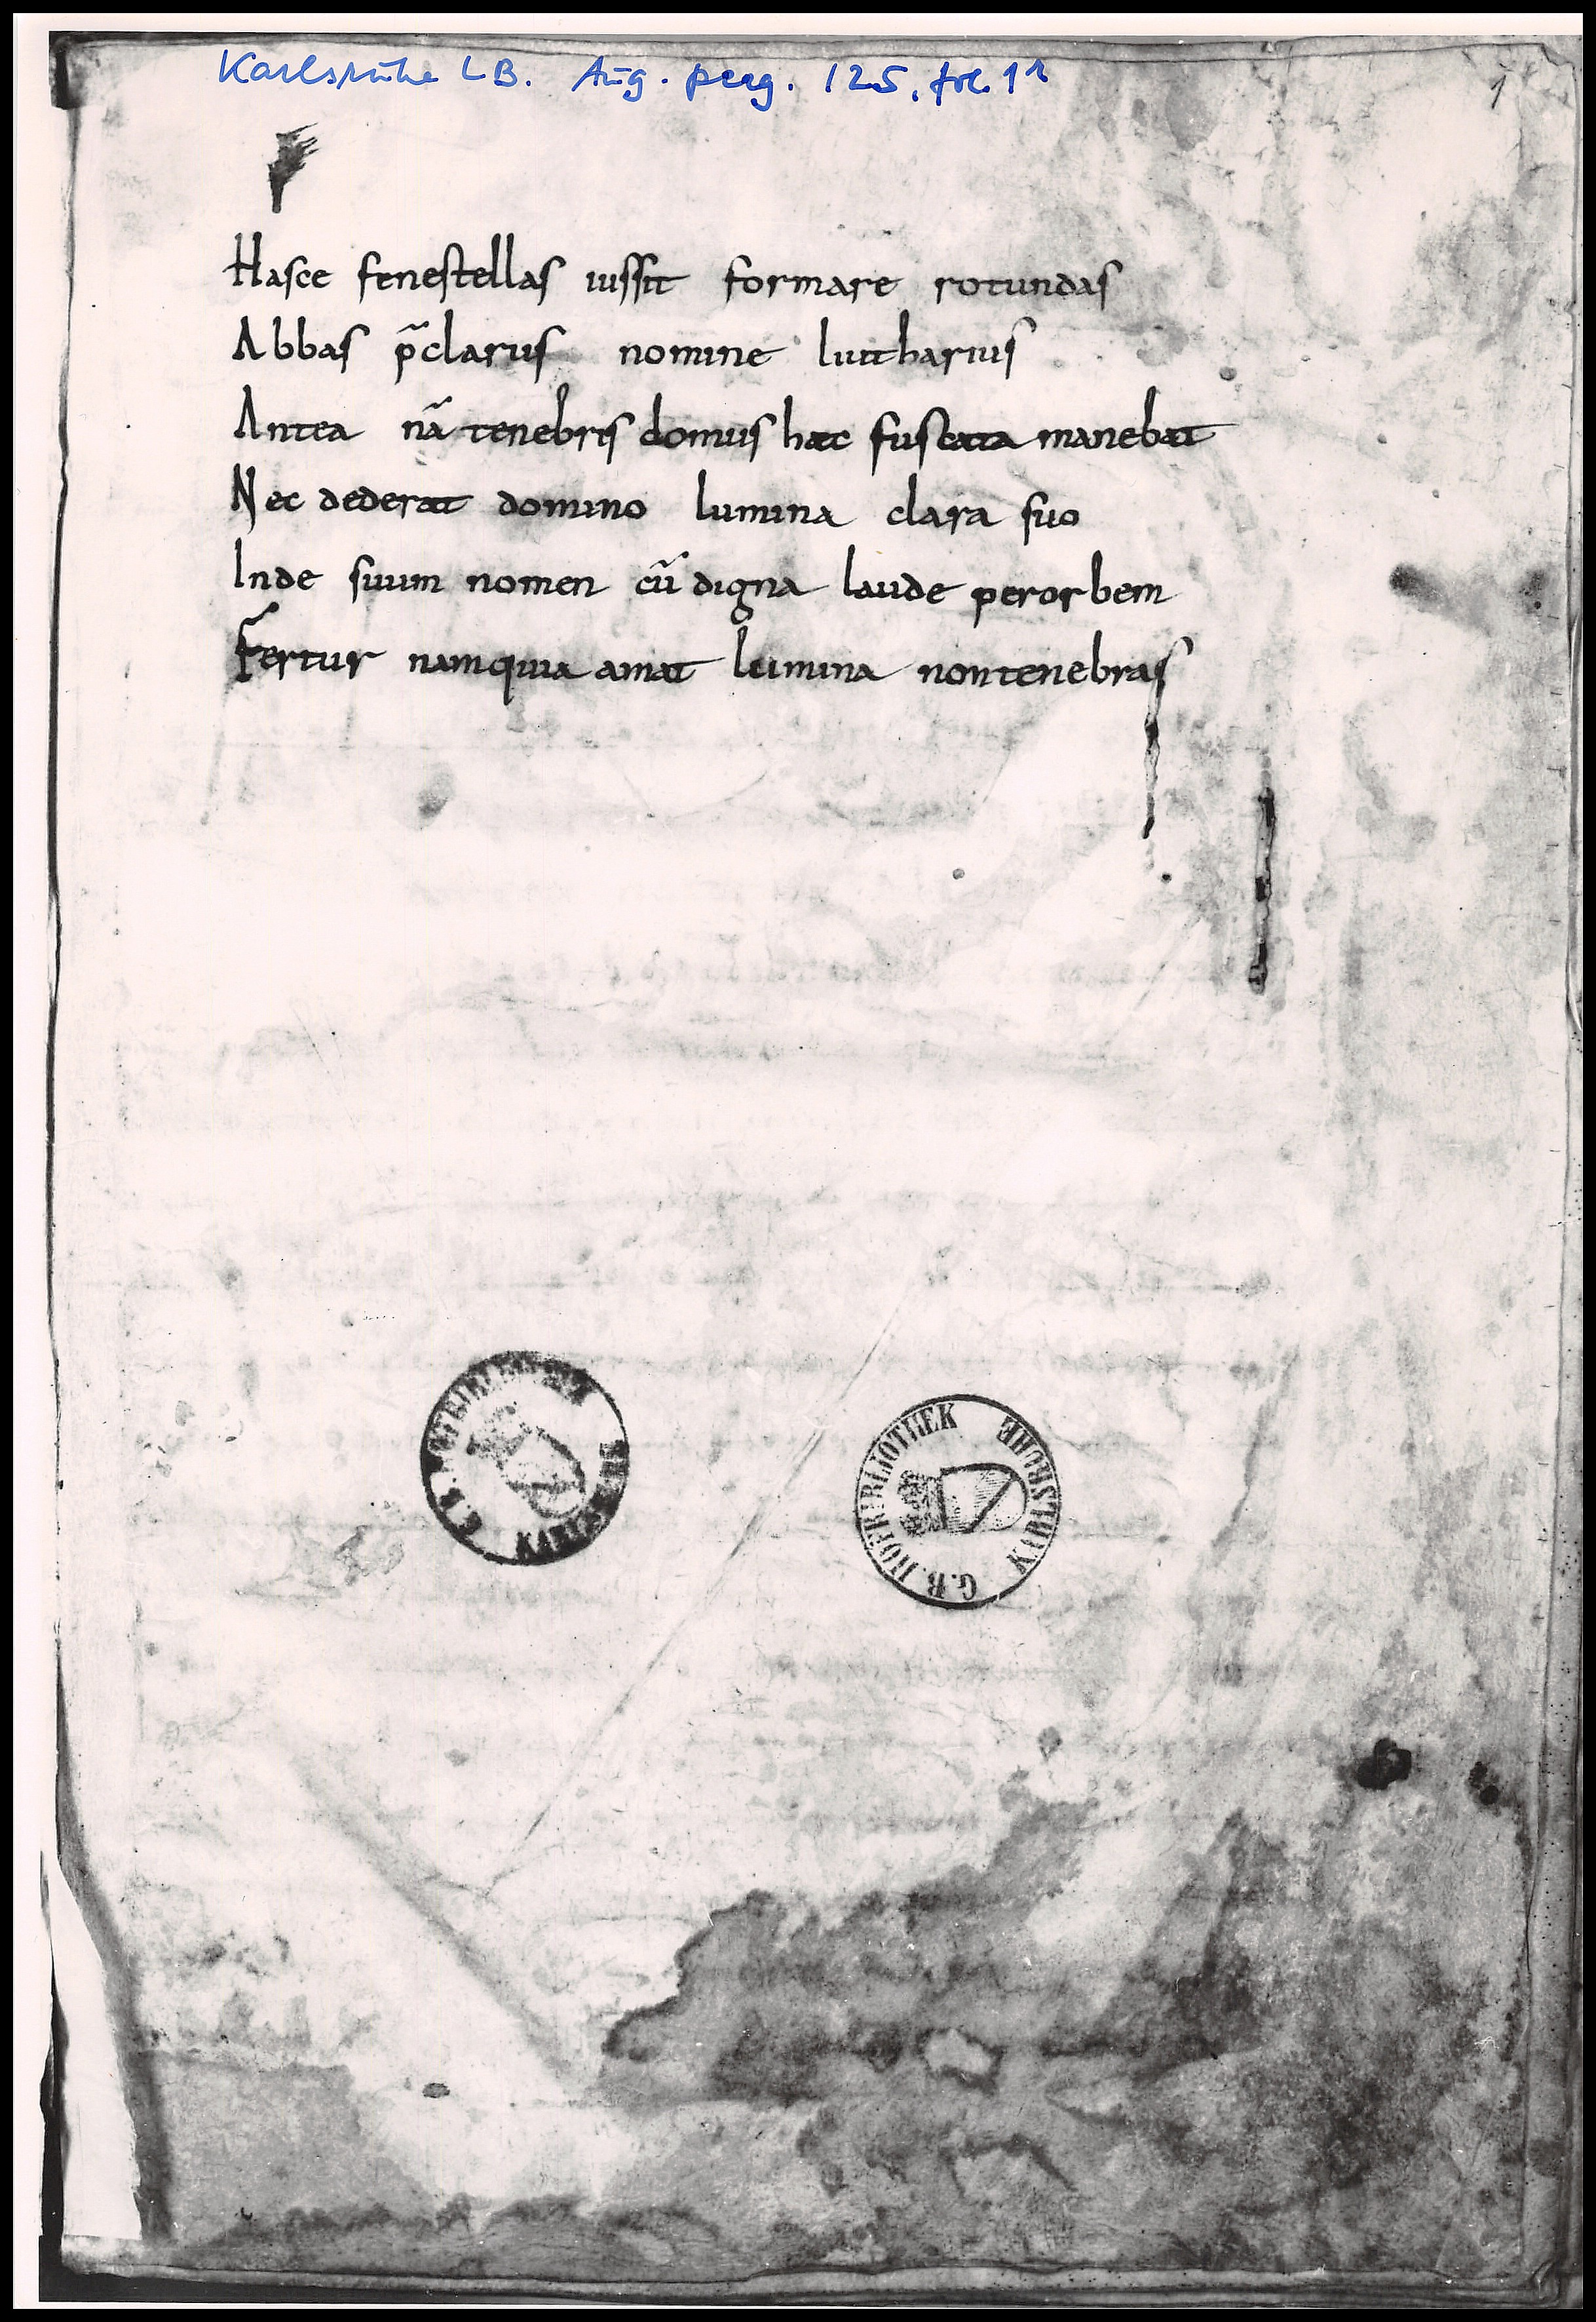 Karlsruhe LB. Aug. perg. 125, fol. 1r
1
Hasce fenestellas iussit formare rotundas
Abbas p̃clarus nomine luitharius
Antea nã tenebris domus haec fuscata manebat
Nec dederat domino lumina clara suo
Inde suum nomen cũ digna laude perorbem
Fertur namquia amat lumina nontenebras
KARLS
G.B. HOFBIBLIOTHEK KARLSRUHE